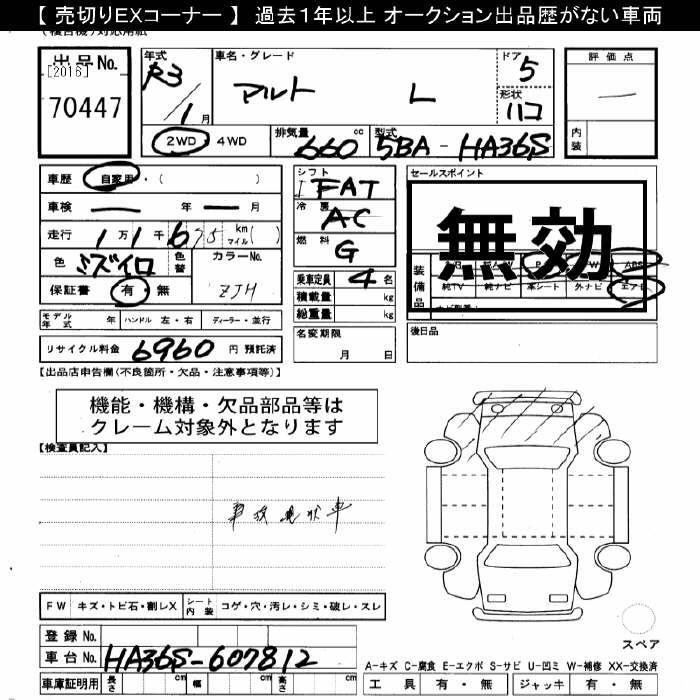 【 売切りEXコーナー 】 過去1年以上 オークション出品歴がない車両
出品No.
[2016]
70447
年式
R3/1月
車名・グレード
アルト L
ドア
5
形状
ハコ
評価点
—
内装
2WD・4WD
排気量 660 cc
型式 5BA-HA36S
車歴 自家用・( )
車検 — 年 — 月
走行 1万1千675 km マイル( )
色 ミズイロ 色替 カラーNo. ZJH
保証書 有・無
シフト FAT
冷房 AC
燃料 G
乗車定員 4 名
積載量 kg
総重量 kg
セールスポイント
無効
装備品
ABS
純TV 純ナビ 革シート 外ナビ エアB
モデル年式 年 ハンドル 左・右 ディーラー・並行
リサイクル料金 6960 円 預託済
名変期限
月 日
後日品
【出品店申告欄(不良箇所・欠品・注意事項等)】
機能・機構・欠品部品等は
クレーム対象外となります
【検査員記入】
事故現状車
FW キズ・トビ石・割レX シート内装 コゲ・穴・汚レ・シミ・破レ・スレ
登録No.
車台No. HA36S-607812
車庫証明用 長さ cm 幅 cm 高さ cm
スペア
A-キズ C-腐食 E-エクボ S-サビ U-凹ミ W-補修 XX-交換済
工具 有・無 ジャッキ 有・無